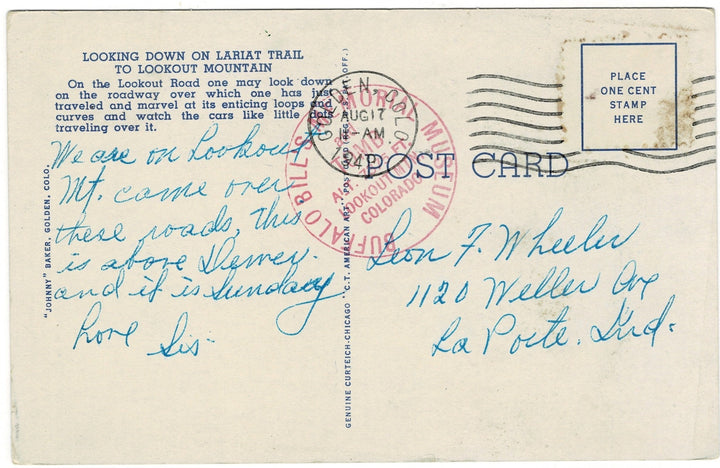 LOOKING DOWN ON LARIAT TRAIL
TO LOOKOUT MOUNTAIN
On the Lookout Road one may look down
on the roadway over which one has just
traveled and marvel at its enticing loops and
curves and watch the cars like little
traveling over it.
We are on Lookout
Mt. came over
these roads, this
is above Denver
and it is Sunday
Love
Sis.
"JOHNNY" BAKER, GOLDEN, COLO.
GENUINE CURTEICH-CHICAGO "C.T. AMERICAN ART" POST CARD (REG. U.S. PAT. OFF.)
GOLDEN, COLO.
AUG 17
-AM
BUFFALO BILL'S MEMORIAL MUSEUM
LOOKOUT
COLORADO
POST CARD
PLACE
ONE CENT
STAMP
HERE
Leon F. Wheeler
1120 Weller Ave
La Porte. Ind.